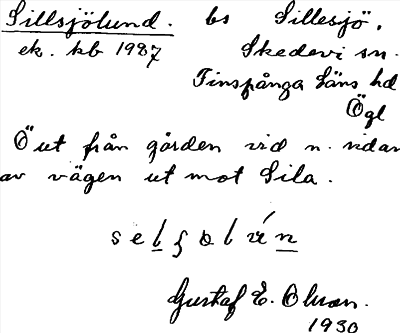 Sillsjölund. bs Sillesjö,
ek. kb 1987 Skedevi sn.
Finspånga läns hd
Ögl
Ö ut från gården vid n. sidan
av vägen ut mot Sila.
Gustaf E. Olson.
1930